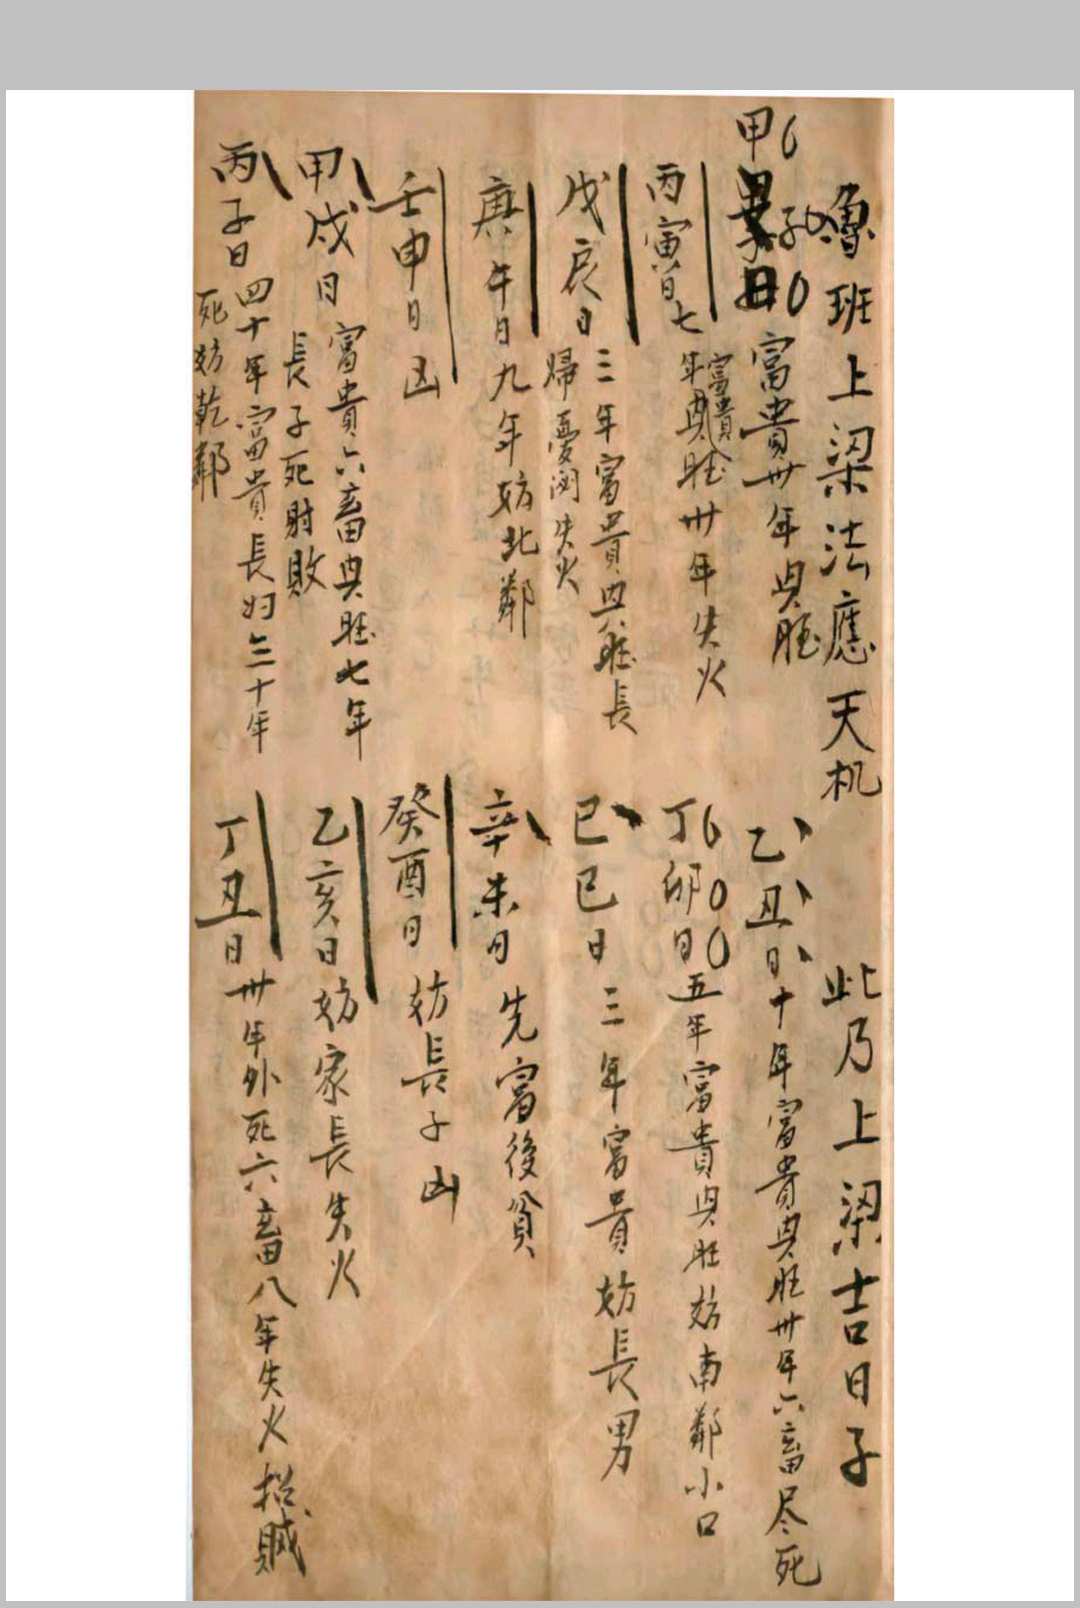 魯班上梁法應天机　此乃上梁吉日子
甲子日富貴卅年興旺
乙丑日十年富貴興旺卅年六畜尽死
丙寅日七年富貴興旺卅年失火
丁卯日五年富貴興旺妨南鄰小口
戊辰日三年富貴興旺長
婦憂 失火
己巳日三年富貴妨長男
庚午日九年妨北鄰
辛未日先富後貧
壬申日凶
癸酉日妨長子凶
甲戌日富貴六畜興旺七年
長子死財敗
乙亥日妨家長失火
丙子日四十年富貴長妇三十年
死妨乾鄰
丁丑日卅年外死六畜八年失火招賊